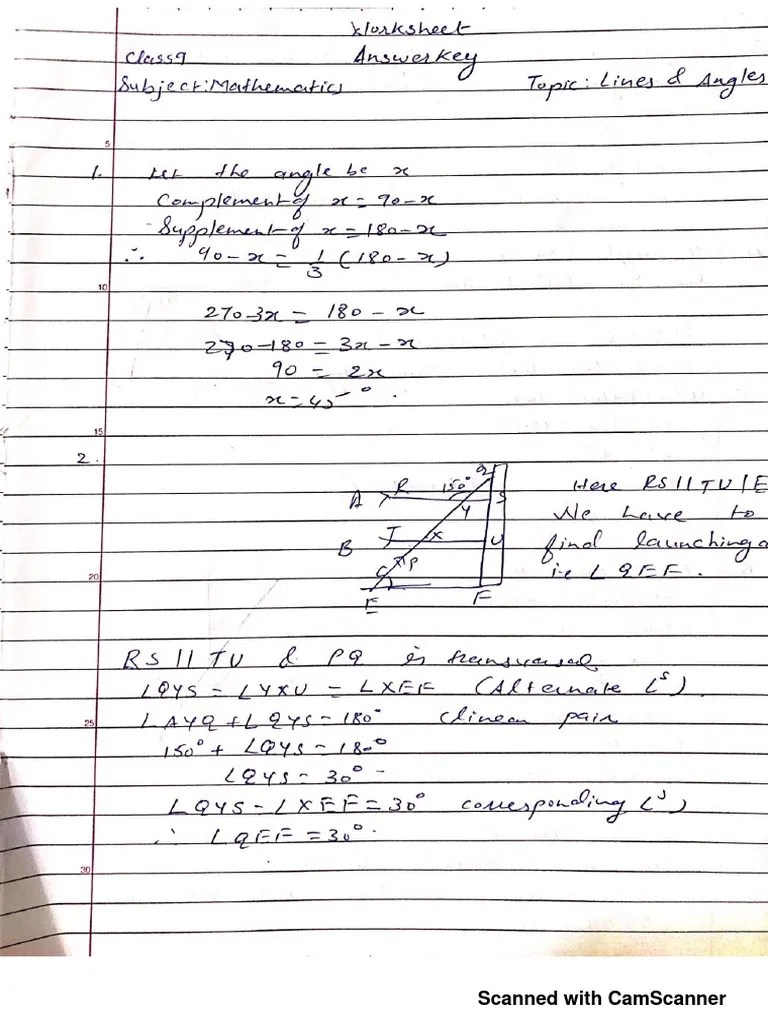 Worksheet
Class 9
Answer Key
Subject: Mathematics
Topic: Lines & Angles
5
1. Let the angle be x
Complement of x = 90 - x
Supplement of x = 180 - x
∴ 90 - x = 1/3 (180 - x)
10
270 - 3x = 180 - x
270 - 180 = 3x - x
90 = 2x
x = 45°.
15
2.
A R 150° Q S
Y
B T X U
C P
E F
Here RS || TU | E
We have to
find launching a
i.e ∠QEF.
20
RS || TU & PQ is transversal
∠QYS = ∠YXU = ∠XEF (Alternate ∠s).
25
∠AYQ + ∠QYS = 180° (linear pair
150° + ∠QYS = 180°
∠QYS = 30°
∠QYS = ∠XEF = 30° corresponding ∠s)
∴ ∠QEF = 30°.
30
Scanned with CamScanner